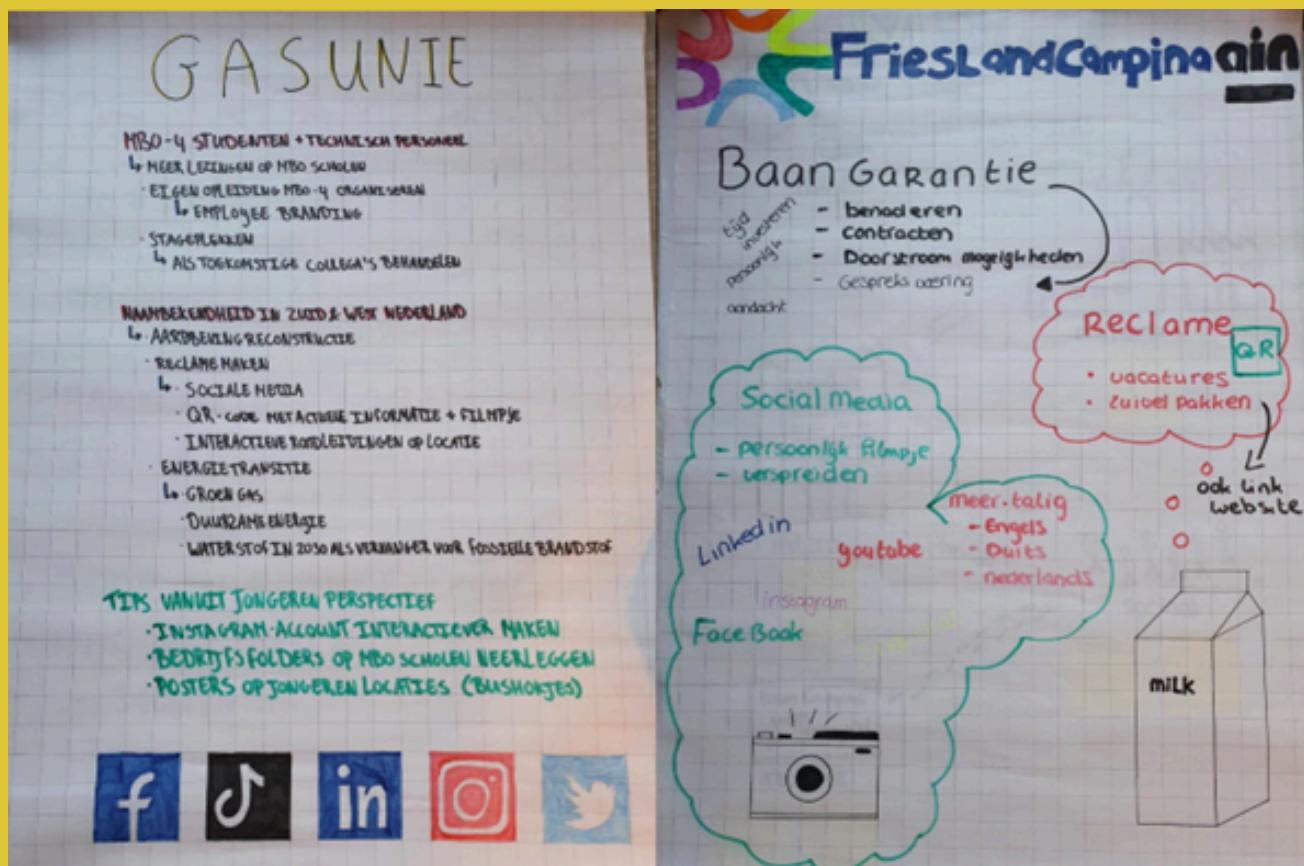 GASUNIE
MBO-4 STUDENTEN + TECHNISCH PERSONEEL
MEER LEZINGEN OP MBO SCHOLEN
· EIGEN OPLEIDING MBO-4 ORGANISEREN
EMPLOYEE BRANDING
· STAGEPLEKKEN
ALS TOEKOMSTIGE COLLEGA'S BEHANDELEN
NAAMBEKENDHEID IN ZUID & WEST NEDERLAND
AARDBEVING RECONSTRUCTIE
· RECLAME MAKEN
· SOCIALE MEDIA
· QR-CODE MET ACTUELE INFORMATIE + FILMPJE
· INTERACTIEVE RONDLEIDINGEN OP LOCATIE
· ENERGIE TRANSITIE
· GROEN GAS
· DUURZAME ENERGIE
· WATERSTOF IN 2030 ALS VERVANGER VOOR FOSSIELE BRANDSTOF
TIPS VANUIT JONGEREN PERSPECTIEF
· INSTAGRAM-ACCOUNT INTERACTIEVER MAKEN
· BEDRIJFSFOLDERS OP MBO SCHOLEN NEERLEGGEN
· POSTERS OP JONGEREN LOCATIES (BUSHOKJES)
f
in
FrieslandCampina ain
Baan Garantie
tijd investeren
persoonlijk
aandacht
- benaderen
- contracten
- Doorstroom mogelijkheden
- Gespreks
Reclame
QR
• vacatures
• zuivel pakken
ook link
website
Social Media
- persoonlijk filmpje
- verspreiden
Linked in
youtube
instagram
FaceBook
meer-talig
- Engels
- Duits
- nederlands
milk